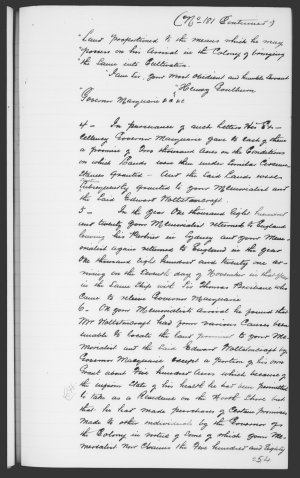 (No 101 Continued)
"Land proportioned to the means which he may
"possess on his Arrival in the Colony of bringing
"the same into Cultivation
"I am Sir your Most Obedient and humble Servant
"Henry Goulburn
"Governor Macquarie &c &c
4 - In pursuance of such Letters His Ex-
cellency Governor Macquarie gave to each of them
a promise of two thousand Acres on the Conditions
on which Lands were then under similar Circum-
stances Granted - And the said Lands were
subsequently granted to your Memorialist and
the said Edward Wollstonecraft.
5 - In the Year One thousand eight hundred
and twenty your Memorialist returned to England
leaving his Partner in Sydney and your Mem-
orialist again returned to England in the Year
One thousand eight hundred and twenty one ar-
riving on the Seventh day of November in that Year
in the same Ship with Sir Thomas Brisbane who
Came to relieve Governor Macquarie
6 - On your Memorialists arrival he found that
Mr Wollstonecraft had from various Causes been
unable to locate the land promised to your Me-
morialist and the said Edward Wollstonecraft by
Governor Macquarie Except a portion of his own
Grant about Five hundred Acres which because of
the infirm state of his health he had been permitted
to take as a Residence on the North Shore but
that he had made purchases of Certain promises
made to other individuals by the Governor of
the Colony in virtue of some of which your Me-
morialist now Claims the Five hundred and Eighty
254